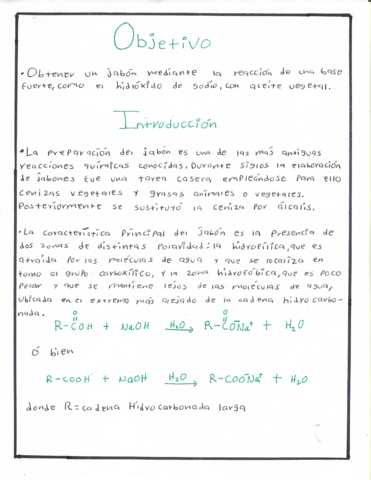 Objetivo
• Obtener un jabón mediante la reacción de una base
fuerte, como el hidróxido de sodio, con aceite vegetal.
Introducción
• La preparación del jabón es una de las más antiguas
reacciones químicas conocidas. Durante siglos la elaboración
de jabones fue una tarea casera empleándose para ello
cenizas vegetales y grasas animales o vegetales.
Posteriormente se sustituyó la ceniza por álcalis.
• La característica Principal del jabón es la presencia de
dos zonas de distintas polaridad: la hidrofílica, que es
atraída por las moléculas de agua y que se localiza en
torno al grupo carboxílico, y la zona hidrofóbica, que es poco
Polar y que se mantiene lejos de las moléculas de agua,
ubicada en el extremo más alejado de la cadena hidrocarbo-
nada.
O O
R-COH + NaOH H2O R-CO⁻Na⁺ + H2O
ó bien
R-COOH + NaOH H2O R-COO⁻Na⁺ + H2O
donde R = cadena Hidrocarbonada larga